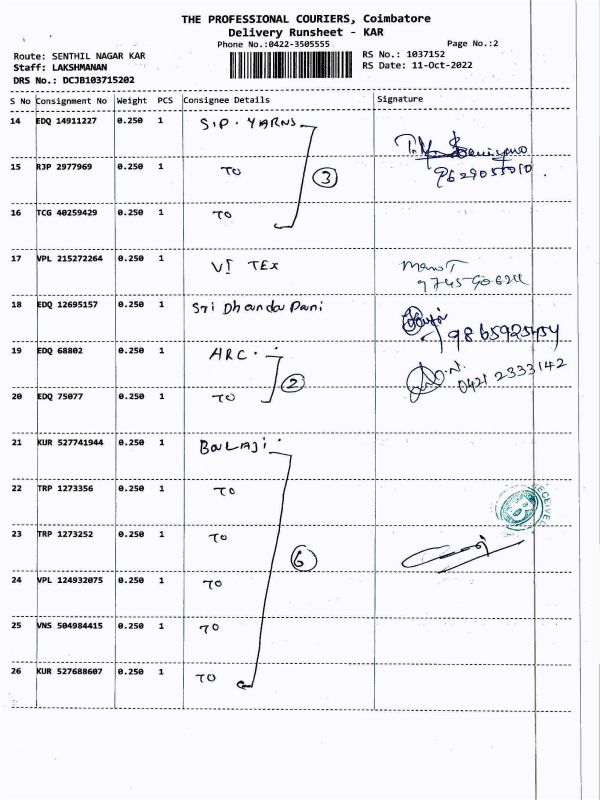 THE PROFESSIONAL COURIERS, Coimbatore
Delivery Runsheet - KAR
Phone No.:0422-3505555 Page No.:2
Route: SENTHIL NAGAR KAR RS No.: 1037152
Staff: LAKSHMANAN RS Date: 11-Oct-2022
DRS No.: DCJB103715202
S No Consignment No Weight PCS Consignee Details Signature
14 EDQ 14911227 0.250 1 S.P. YARNS
15 RJP 2977969 0.250 1 TO 3 9629055010
16 TCG 40259429 0.250 1 TO
17 VPL 215272264 0.250 1 VI TEX
18 EDQ 12695157 0.250 1 Sri Dhanda Pani 9865925454
19 EDQ 68802 0.250 1 ARC. 2 0421 2333142
20 EDQ 75077 0.250 1 TO
21 KUR 527741944 0.250 1 BaLAJi
22 TRP 1273356 0.250 1 TO RECEIVED
23 TRP 1273252 0.250 1 TO 6
24 VPL 124932075 0.250 1 TO
25 VNS 504984415 0.250 1 TO
26 KUR 527688607 0.250 1 TO